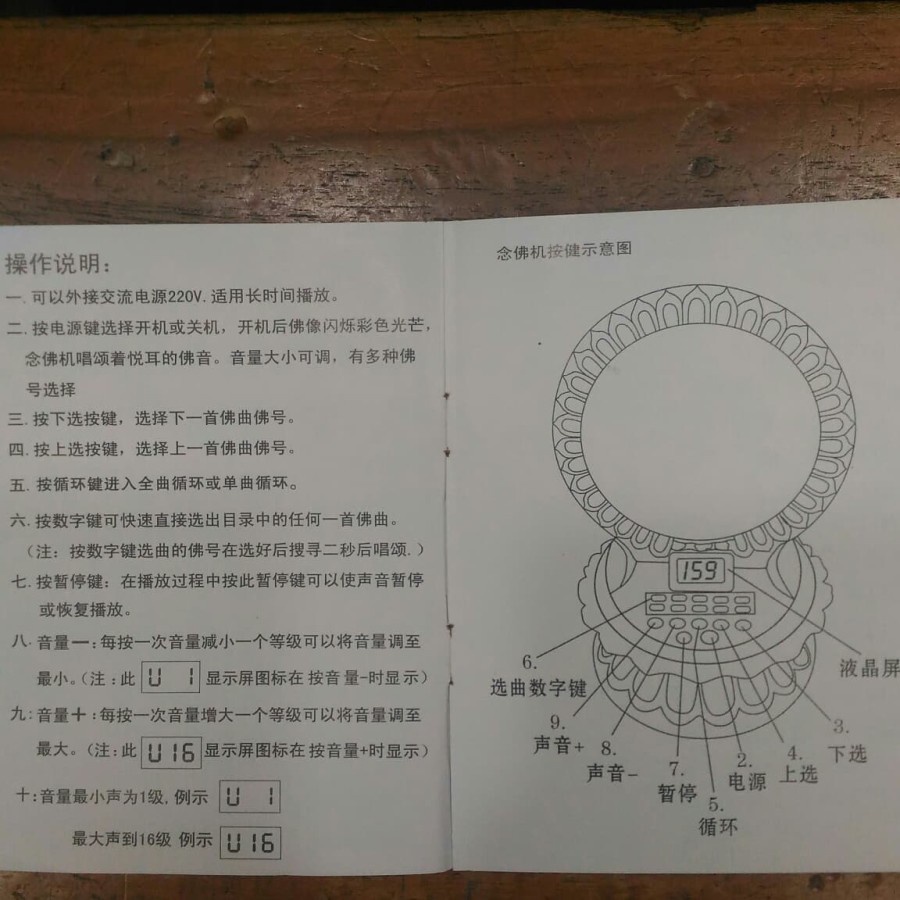 操作说明：
一.可以外接交流电源220V.适用长时间播放。
二.按电源键选择开机或关机，开机后佛像闪烁彩色光芒，
念佛机唱颂着悦耳的佛音。音量大小可调，有多种佛
号选择
三.按下选按键，选择下一首佛曲佛号。
四.按上选按键，选择上一首佛曲佛号。
五.按循环键进入全曲循环或单曲循环。
六.按数字键可快速直接选出目录中的任何一首佛曲。
（注：按数字键选曲的佛号在选好后搜寻二秒后唱颂.）
七.按暂停键：在播放过程中按此暂停键可以使声音暂停
或恢复播放。
八.音量一:每按一次音量减小一个等级可以将音量调至
最小。（注:此 U 1 显示屏图标在按音量-时显示）
九:音量＋:每按一次音量增大一个等级可以将音量调至
最大。（注:此 U16 显示屏图标在按音量+时显示）
十:音量最小声为1级.例示 U 1
最大声到16级 例示 U16
念佛机按健示意图
159
液晶屏
6.
选曲数字键
9.
声音+
8.
声音-
7.
暂停
5.
循环
2.
电源
4.
上选
3.
下选